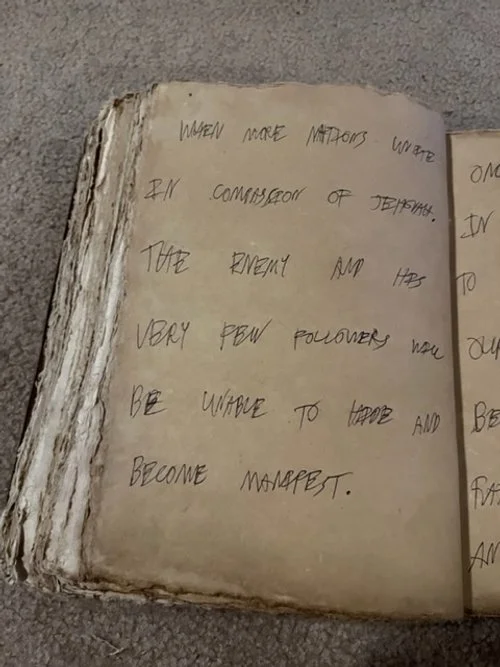 WHEN MORE NATIONS UNITE
IN COMPASSION OF JEHOVAH.
THE ENEMY AND HIS
VERY FEW FOLLOWERS WILL
BE UNABLE TO HIDE AND
BECOME MANIFEST.
IN
TO
BE